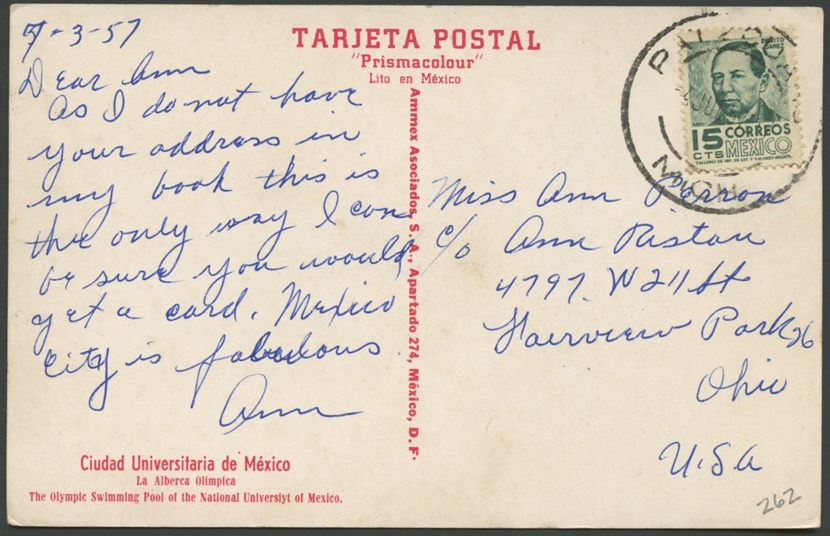 TARJETA POSTAL
"Prismacolour"
Lito en México
7-3-57
Dear Ann
As I do not have
your address in
my book this is
the only way I can
be sure you would
get a card. Mexico
City is fabulous
Ann
Ciudad Universitaria de México
La Alberca Olímpica
The Olympic Swimming Pool of the National Universiyt of Mexico.
Ammex Asociados, S. A., Apartado 274, México, D. F.
BENITO
JUAREZ
15 CORREOS
CTS MEXICO
Miss Ann
c/o Ann Ristau
4797 W 211 St
Fairview Park 26
Ohio
U.S.A
262